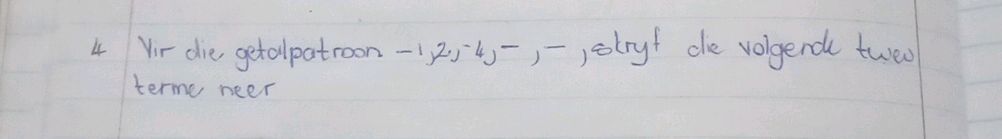 4 Vir die getalpatroon -1, 2, -4, -, -, skryf die volgende twee
terme neer